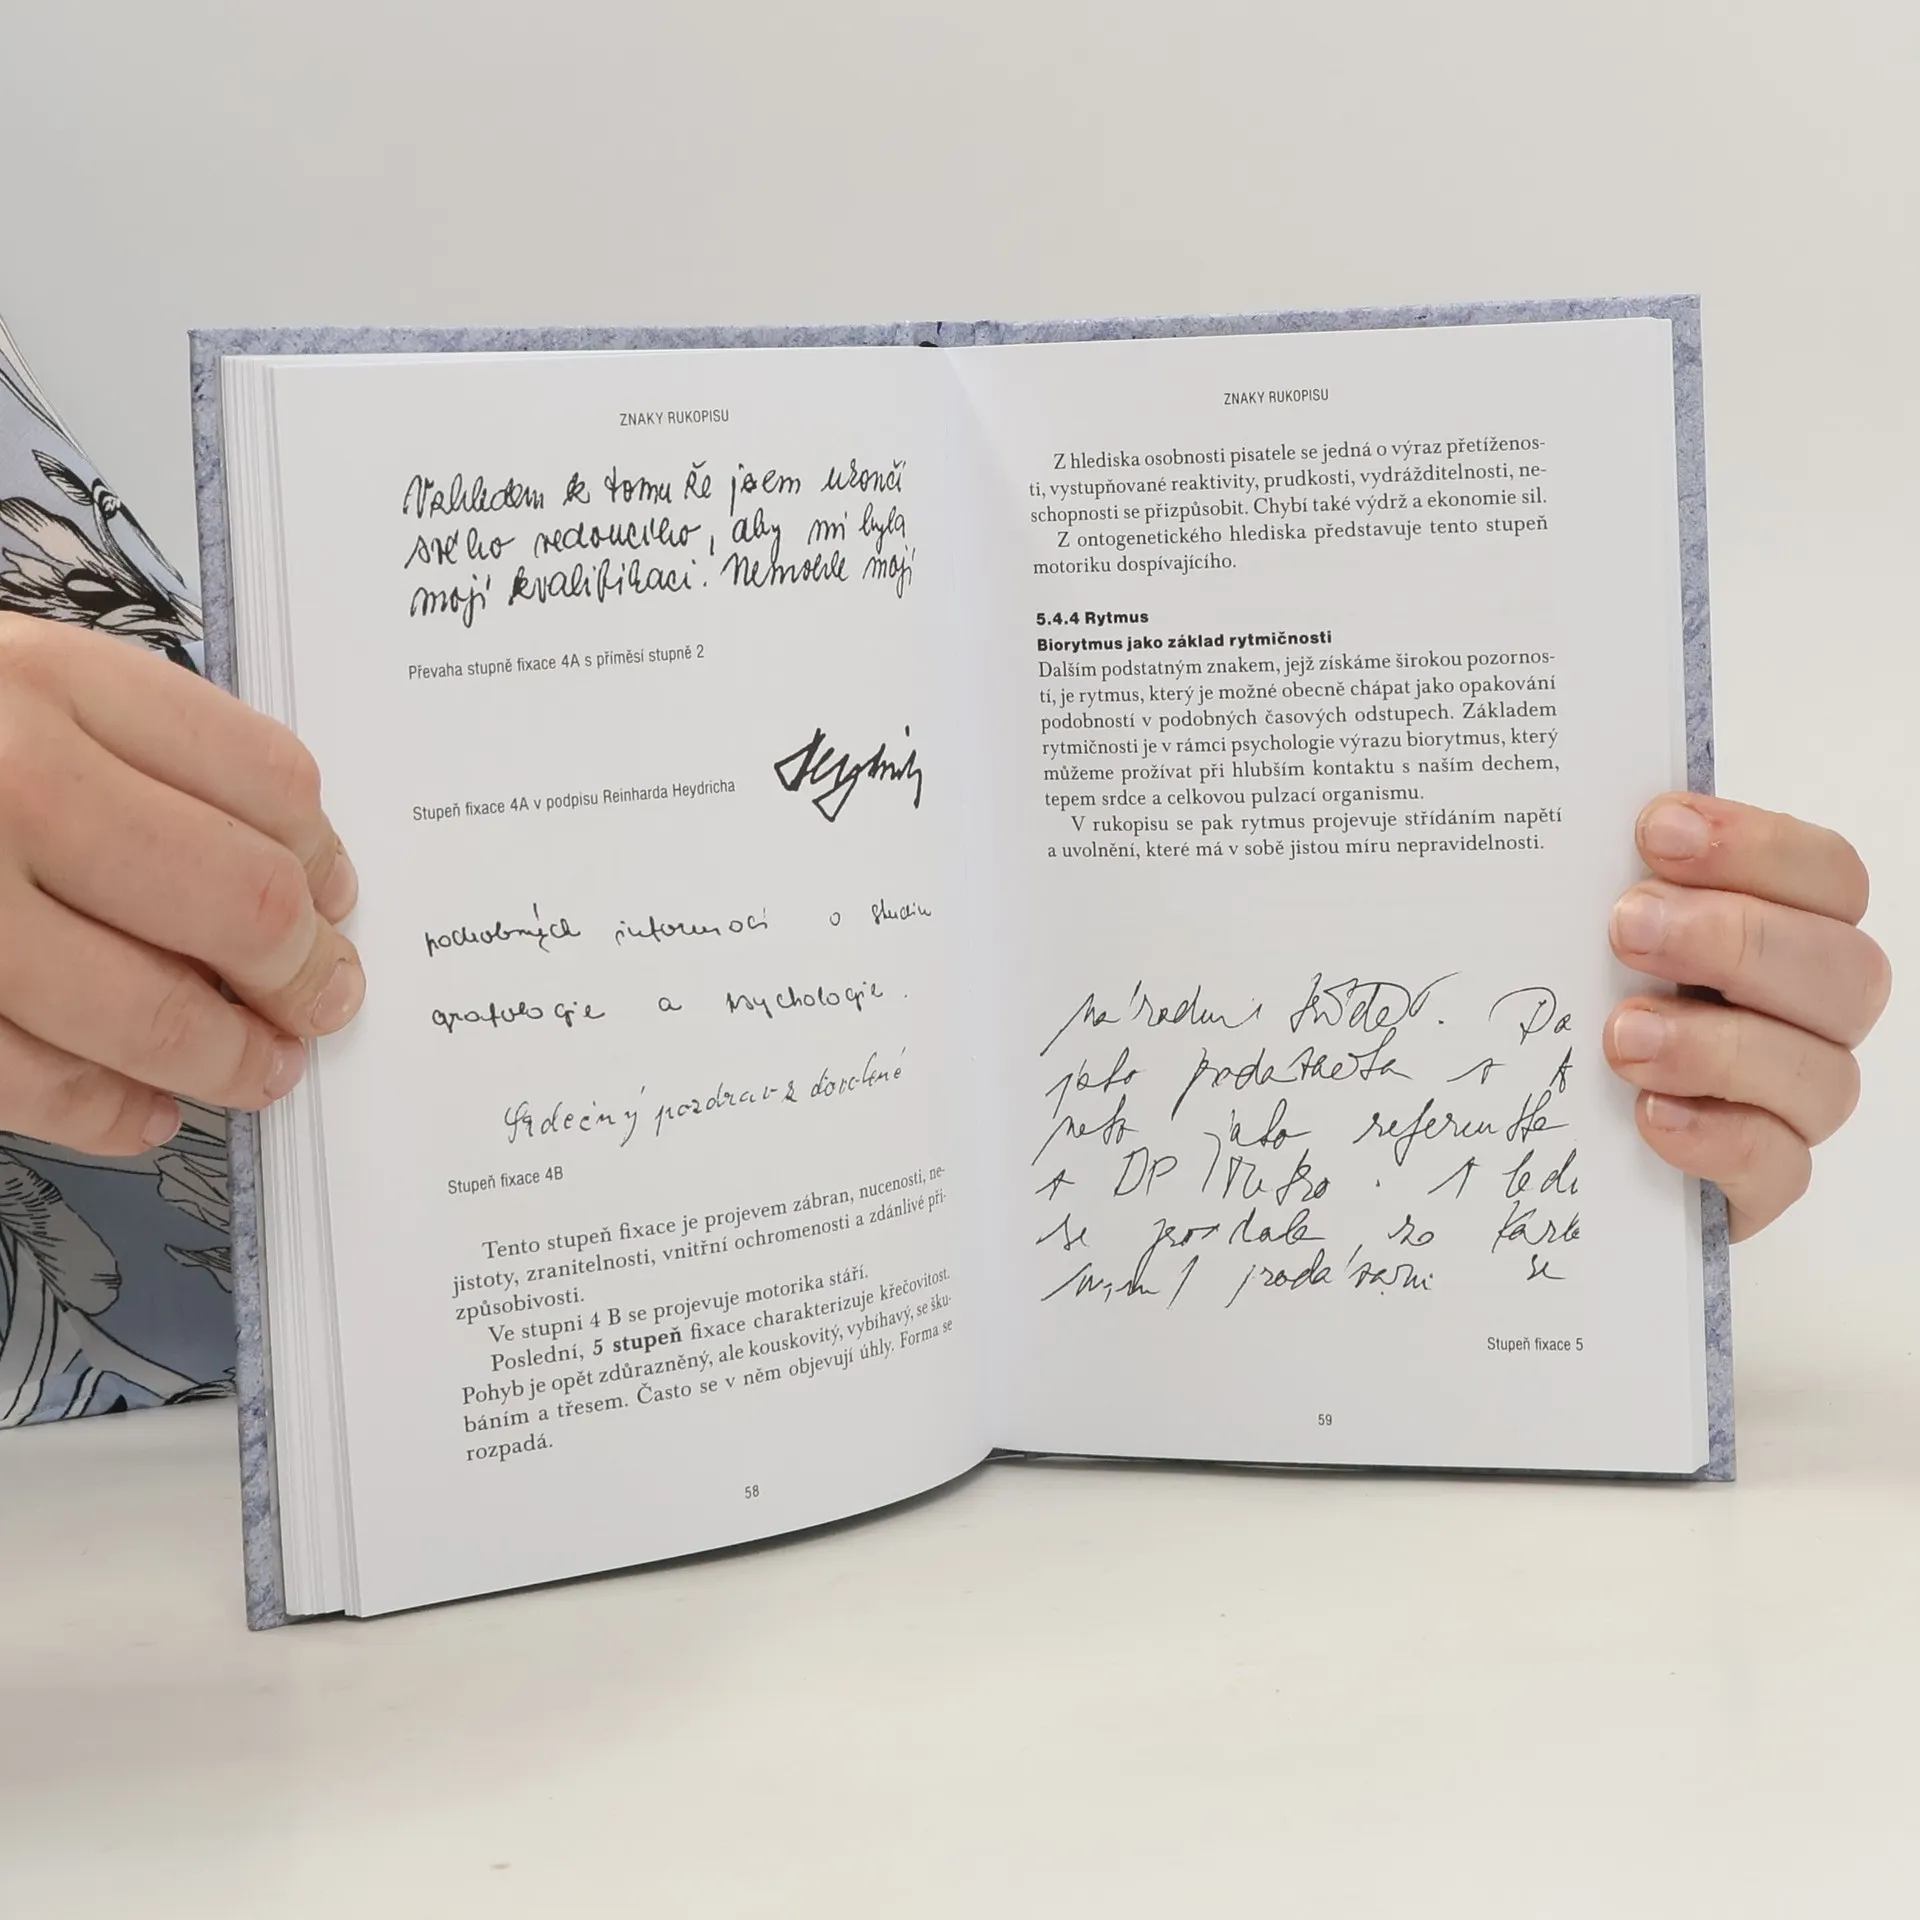 ZNAKY RUKOPISU
Vzhledem k tomu že jsem skončí
svého vedoucího, aby mi byla
mojí kvalifikaci. Nemohle mojí
Převaha stupně fixace 4A s příměsí stupně 2
Stupeň fixace 4A v podpisu Reinharda Heydricha
podrobných informací o studiu
grafologie a psychologie.
Srdečný pozdrav z dovolené
Stupeň fixace 4B
Tento stupeň fixace je projevem zábran, nucenosti, ne-
jistoty, zranitelnosti, vnitřní ochromenosti a zdánlivé při-
způsobivosti.
Ve stupni 4 B se projevuje motorika stáří.
Poslední, 5 stupeň fixace charakterizuje křečovitost.
Pohyb je opět zdůrazněný, ale kouskovitý, vybíhavý, se šku-
báním a třesem. Často se v něm objevují úhly. Forma se
rozpadá.
58
ZNAKY RUKOPISU
Z hlediska osobnosti pisatele se jedná o výraz přetíženos-
ti, vystupňované reaktivity, prudkosti, vydrážditelnosti, ne-
schopnosti se přizpůsobit. Chybí také výdrž a ekonomie sil.
Z ontogenetického hlediska představuje tento stupeň
motoriku dospívajícího.
5.4.4 Rytmus
Biorytmus jako základ rytmičnosti
Dalším podstatným znakem, jejž získáme širokou pozornos-
tí, je rytmus, který je možné obecně chápat jako opakování
podobností v podobných časových odstupech. Základem
rytmičnosti je v rámci psychologie výrazu biorytmus, který
můžeme prožívat při hlubším kontaktu s naším dechem,
tepem srdce a celkovou pulzací organismu.
V rukopisu se pak rytmus projevuje střídáním napětí
a uvolnění, které má v sobě jistou míru nepravidelnosti.
Do
jako prodavačka
nebo jako referentka
DP
se
se
Stupeň fixace 5
59